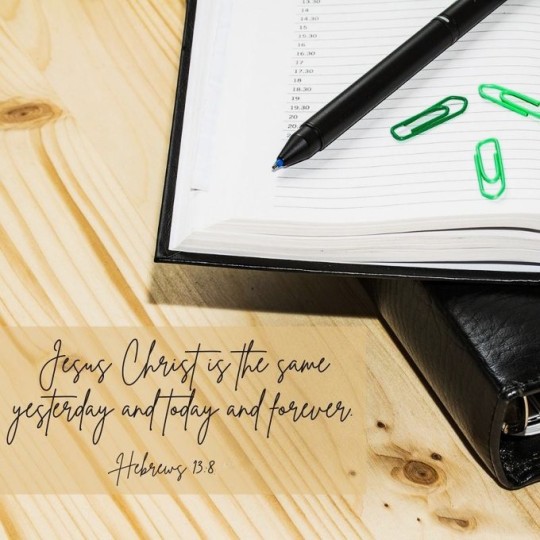 13.30
14
14.30
15
15.30
16
16.30
17
17.30
18
18.30
19
19.30
20
Jesus Christ is the same
yesterday and today and forever.
Hebrews 13:8